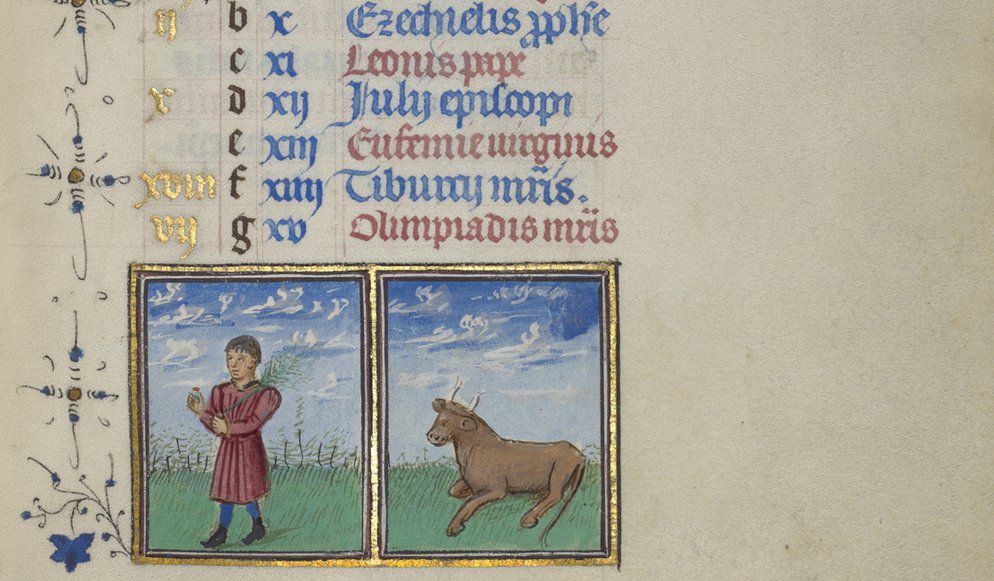 ij b x Ezechielis pph̄e
c xi Leonis pape
x d xij Julij episcopi
e xiij Eufemie uirginis
xviii f xiiij Tiburcij mr̄is.
vij g xv Olimpiadis mr̄is